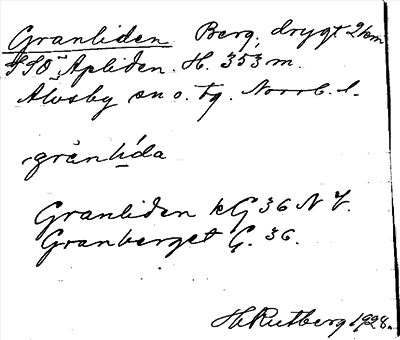 Granliden Berg, drygt 2 km
SSO Apliden. H. 353 m.
Älvsby sn o. tg. Norrb. l.
grånlida
Granliden kG 36 N V.
Granberget G. 36.
H. Rutberg 1928.